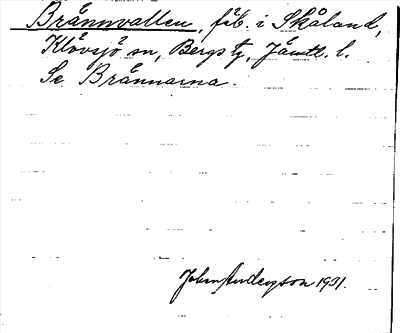 Brännvallen, fäb. i Skåland,
Klövsjö sn, Bergs tg, Jämtl. l.
Se Brännarna.
John Andersson 1931.